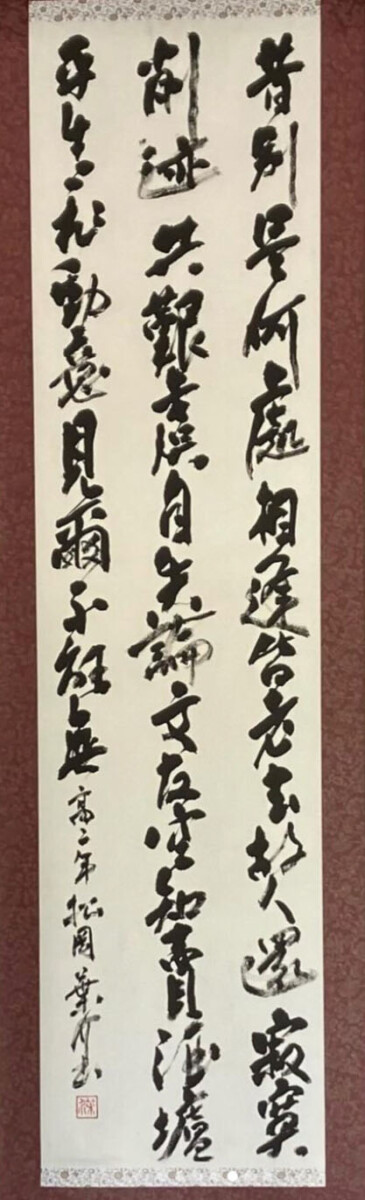 昔別是何處相逢皆老夫故人還寂寞
削迹共艱虞自失論文友空知賣酒壚
平生飛動意見爾不能無 高二年 松岡